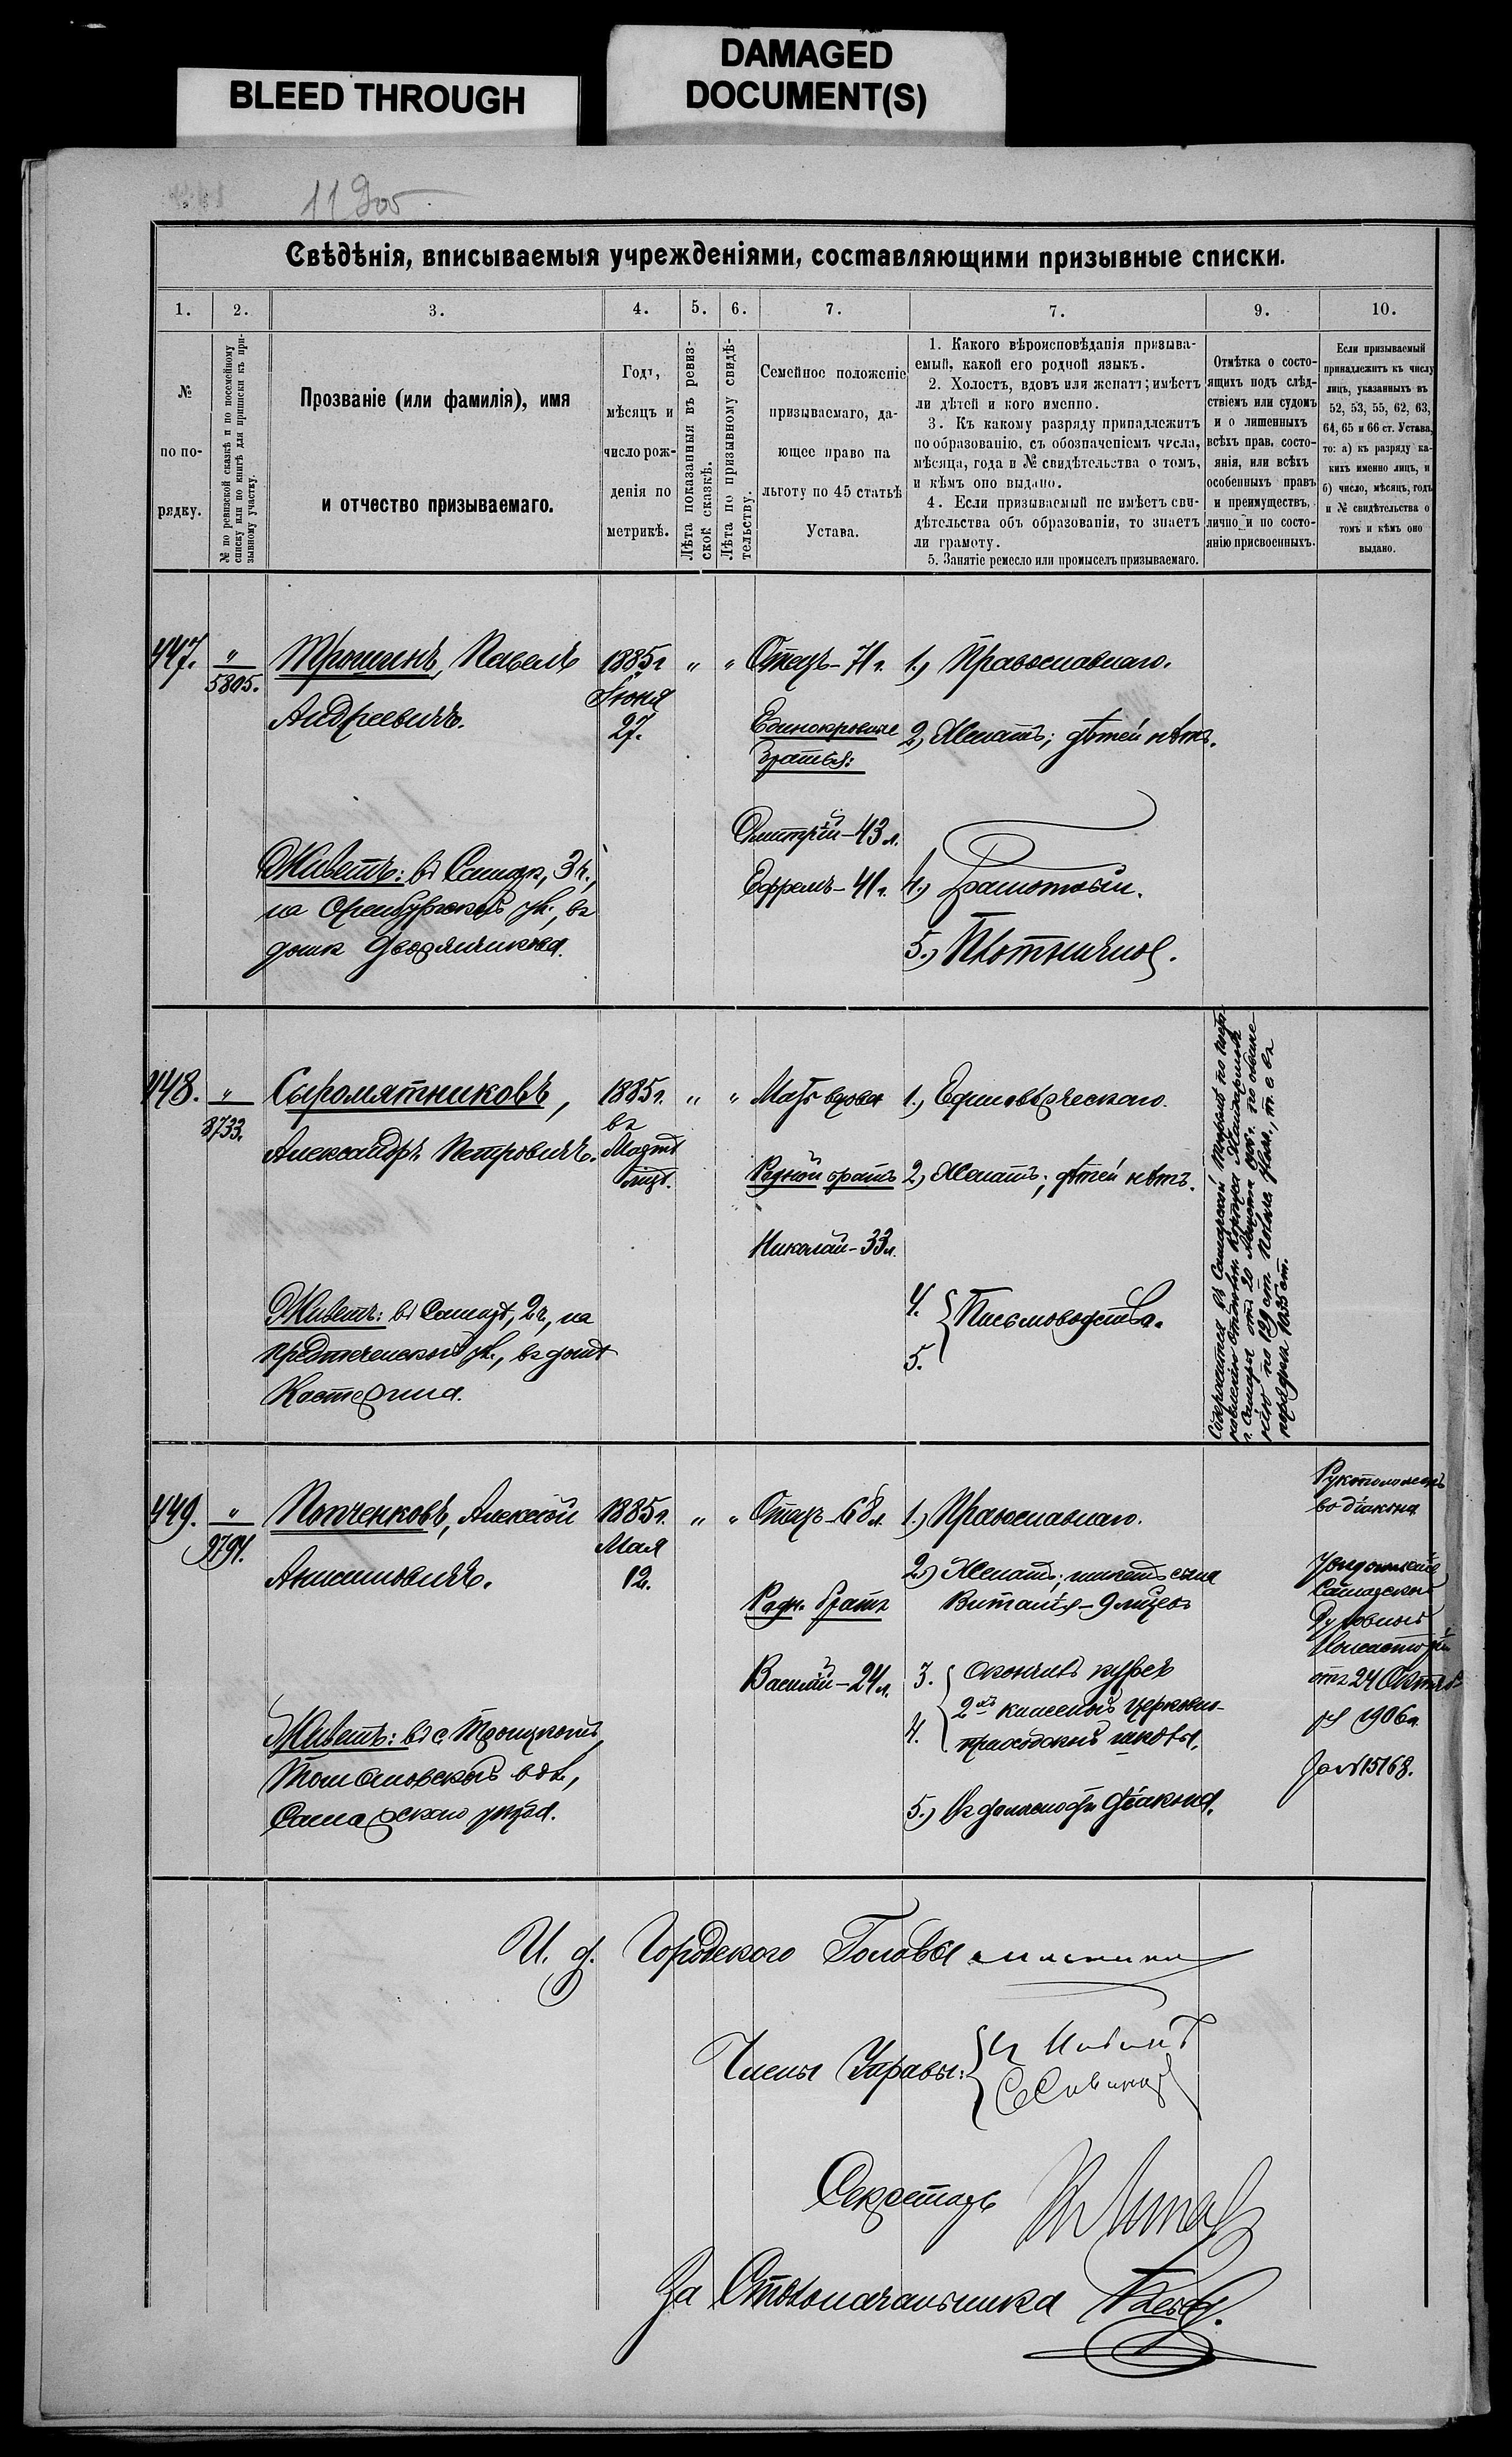 BLEED THROUGH
DAMAGED
DOCUMENT(S)
Свѣдѣнія, вписываемыя учрежденіями, составляющими призывные списки.
1.
2.
3.
4.
5.
6.
7.
7.
9.
10.
№
по по-
рядку.
№ по ревизской сказкѣ и по посемейному
списку или по книгѣ для приписки къ при-
зывному участку.
Прозваніе (или фамилія), имя
и отчество призываемаго.
Годъ,
мѣсяцъ и
число рож-
денія по
метрикѣ.
Лѣта показанныя въ ревиз-
ской сказкѣ.
Лѣта по призывному свидѣ-
тельству.
Семейное положеніе
призываемаго, да-
ющее право на
льготу по 45 статьѣ
Устава.
1. Какого вѣроисповѣданія призыва-
емый, какой его родной языкъ.
2. Холостъ, вдовъ или женатъ; имѣетъ
ли дѣтей и кого именно.
3. Къ какому разряду принадлежитъ
по образованію, съ обозначеніемъ числа,
мѣсяца, года и № свидѣтельства о томъ,
и кѣмъ оно выдано.
4. Если призываемый не имѣетъ сви-
дѣтельства объ образованіи, то знаетъ
ли грамоту.
5. Занятіе ремесло или промыселъ призываемаго.
Отмѣтка о состо-
ящихъ подъ слѣд-
ствіемъ или судомъ
и о лишенныхъ
всѣхъ прав. состо-
янія, или всѣхъ
особенныхъ правъ
и преимуществъ,
лично и по состо-
янію присвоенныхъ.
Если призываемый
принадлежитъ къ числу
лицъ, указанныхъ въ
52, 53, 55, 62, 63,
64, 65 и 66 ст. Устава,
то: а) къ разряду ка-
кихъ именно лицъ, и
б) число, мѣсяцъ, годъ
и № свидѣтельства о
томъ и кѣмъ оно
выдано.
447. " 5805. Трошинъ, Павелъ 1885г. " " Отецъ-71г. 1.) Православнаго.
Андреевичъ. Іюня 27.
Единокровные братья: 2.) Женатъ; дѣтей нѣтъ.
Дмитрій-43л.
Живетъ: въ Самарѣ, 3ч., Ефремъ-41г. 4.) Грамотный.
на Оренбургской ул., въ
домѣ Дводянчикова. 5.)
448. " 8733. Сыромятниковъ, 1885г. " " Мать вдова 1.) Единовѣрческаго.
Александръ Петровичъ. въ Мартѣ мцѣ.
Родной братъ 2.) Женатъ; дѣтей нѣтъ.
Николай-33л.
Живетъ: въ Самарѣ, 2ч., на 4. 5. Письмоводства.
Предтеченской ул., въ домѣ
Костерина.
Содержится въ Самарской Тюрьмѣ
Корпуса Жандармовъ
г. Самара отъ 20 1906г. по обвине-
нію по 129 ст. Новаго Улож., т. е. въ
порядкѣ 1035 ст.
449. " 9791. Попченковъ, Алексѣй 1885г. " " Отецъ-68л. 1.) Православнаго.
Мая 12.
2.) Женатъ; имѣетъ сына
Родн. братъ Виталія-9 мѣцевъ
Василій-24л. 3. 4. Окончилъ курсъ
2хъ классной церковно-
приходской школы.
Живетъ: въ с. Троицкомъ,
волос.,
Самарскаго уѣзда. 5.) Въ должности діакона.
Рукоположенъ
во діакона
Самарской
Духовной
Консисторіи
отъ 24 Октяб-
ря 1906г.
за №15168.
И. д. Городского Головы
Члены Управы:
Секретарь
За Столоначальника